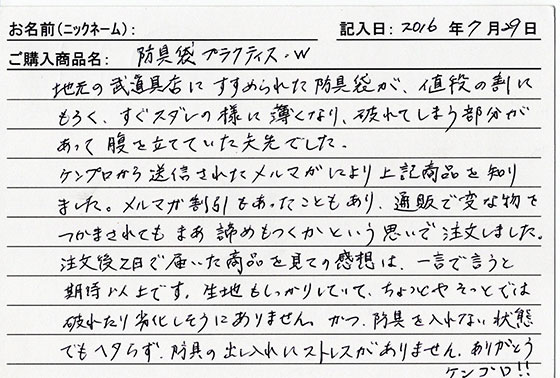 お名前(ニックネーム):
記入日: 2016 年 7 月 29 日
ご購入商品名: 防具袋 プラクティス・W
地元の武道具店にすすめられた防具袋が、値段の割に
もろく、すぐスダレの様に薄くなり、破れてしまう部分が
あって腹を立てていた矢先でした。
ケンプロから送信されたメルマガにより上記商品を知り
ました。メルマガ割引もあったこともあり、通販で変な物を
つかまされてもまあ諦めもつくかという思いで注文しました。
注文後2日で届いた商品を見ての感想は、一言で言うと
期待以上です。生地もしっかりしていて、ちょっとやそっとでは
破れたり劣化しそうにありません。かつ、防具を入れない状態
でもヘタらず、防具の出し入れにストレスがありません。ありがとう
ケンプロ!!